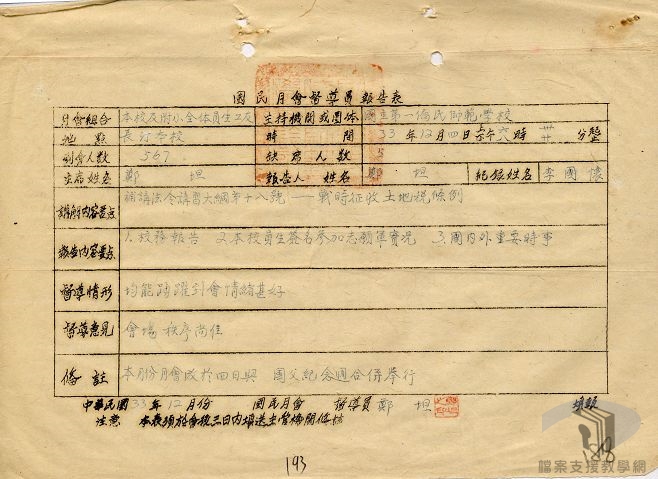 國民月會督導員報告表
月會組合 本校及附小全体員生工友 主持機關或團体 國立第一僑民師範學校
地點 長汀本校 時間 33年12月四日 六時 卅分鐘
到會人數 567 缺席人數 5
主席姓名 鄭坦 報告人姓名 鄭坦 紀錄姓名 李國懷
講解內容要点 補講法令講習大綱第十八號——戰時征收土地稅條例
報告內容要点 1. 校務報告 2. 本校員生簽名參加志願軍實況 3. 國內外重要時事
督導情形 均能踴躍到會情緒甚好
督導意見 會場秩序尚佳
備註 本月份月會成於四日與 國父紀念週合併舉行
中華民國33年12月份 國民月會 督導員 鄭坦 填報
注意 本表須於會後三日內填送主管機關
193
188
檔案支援教學網